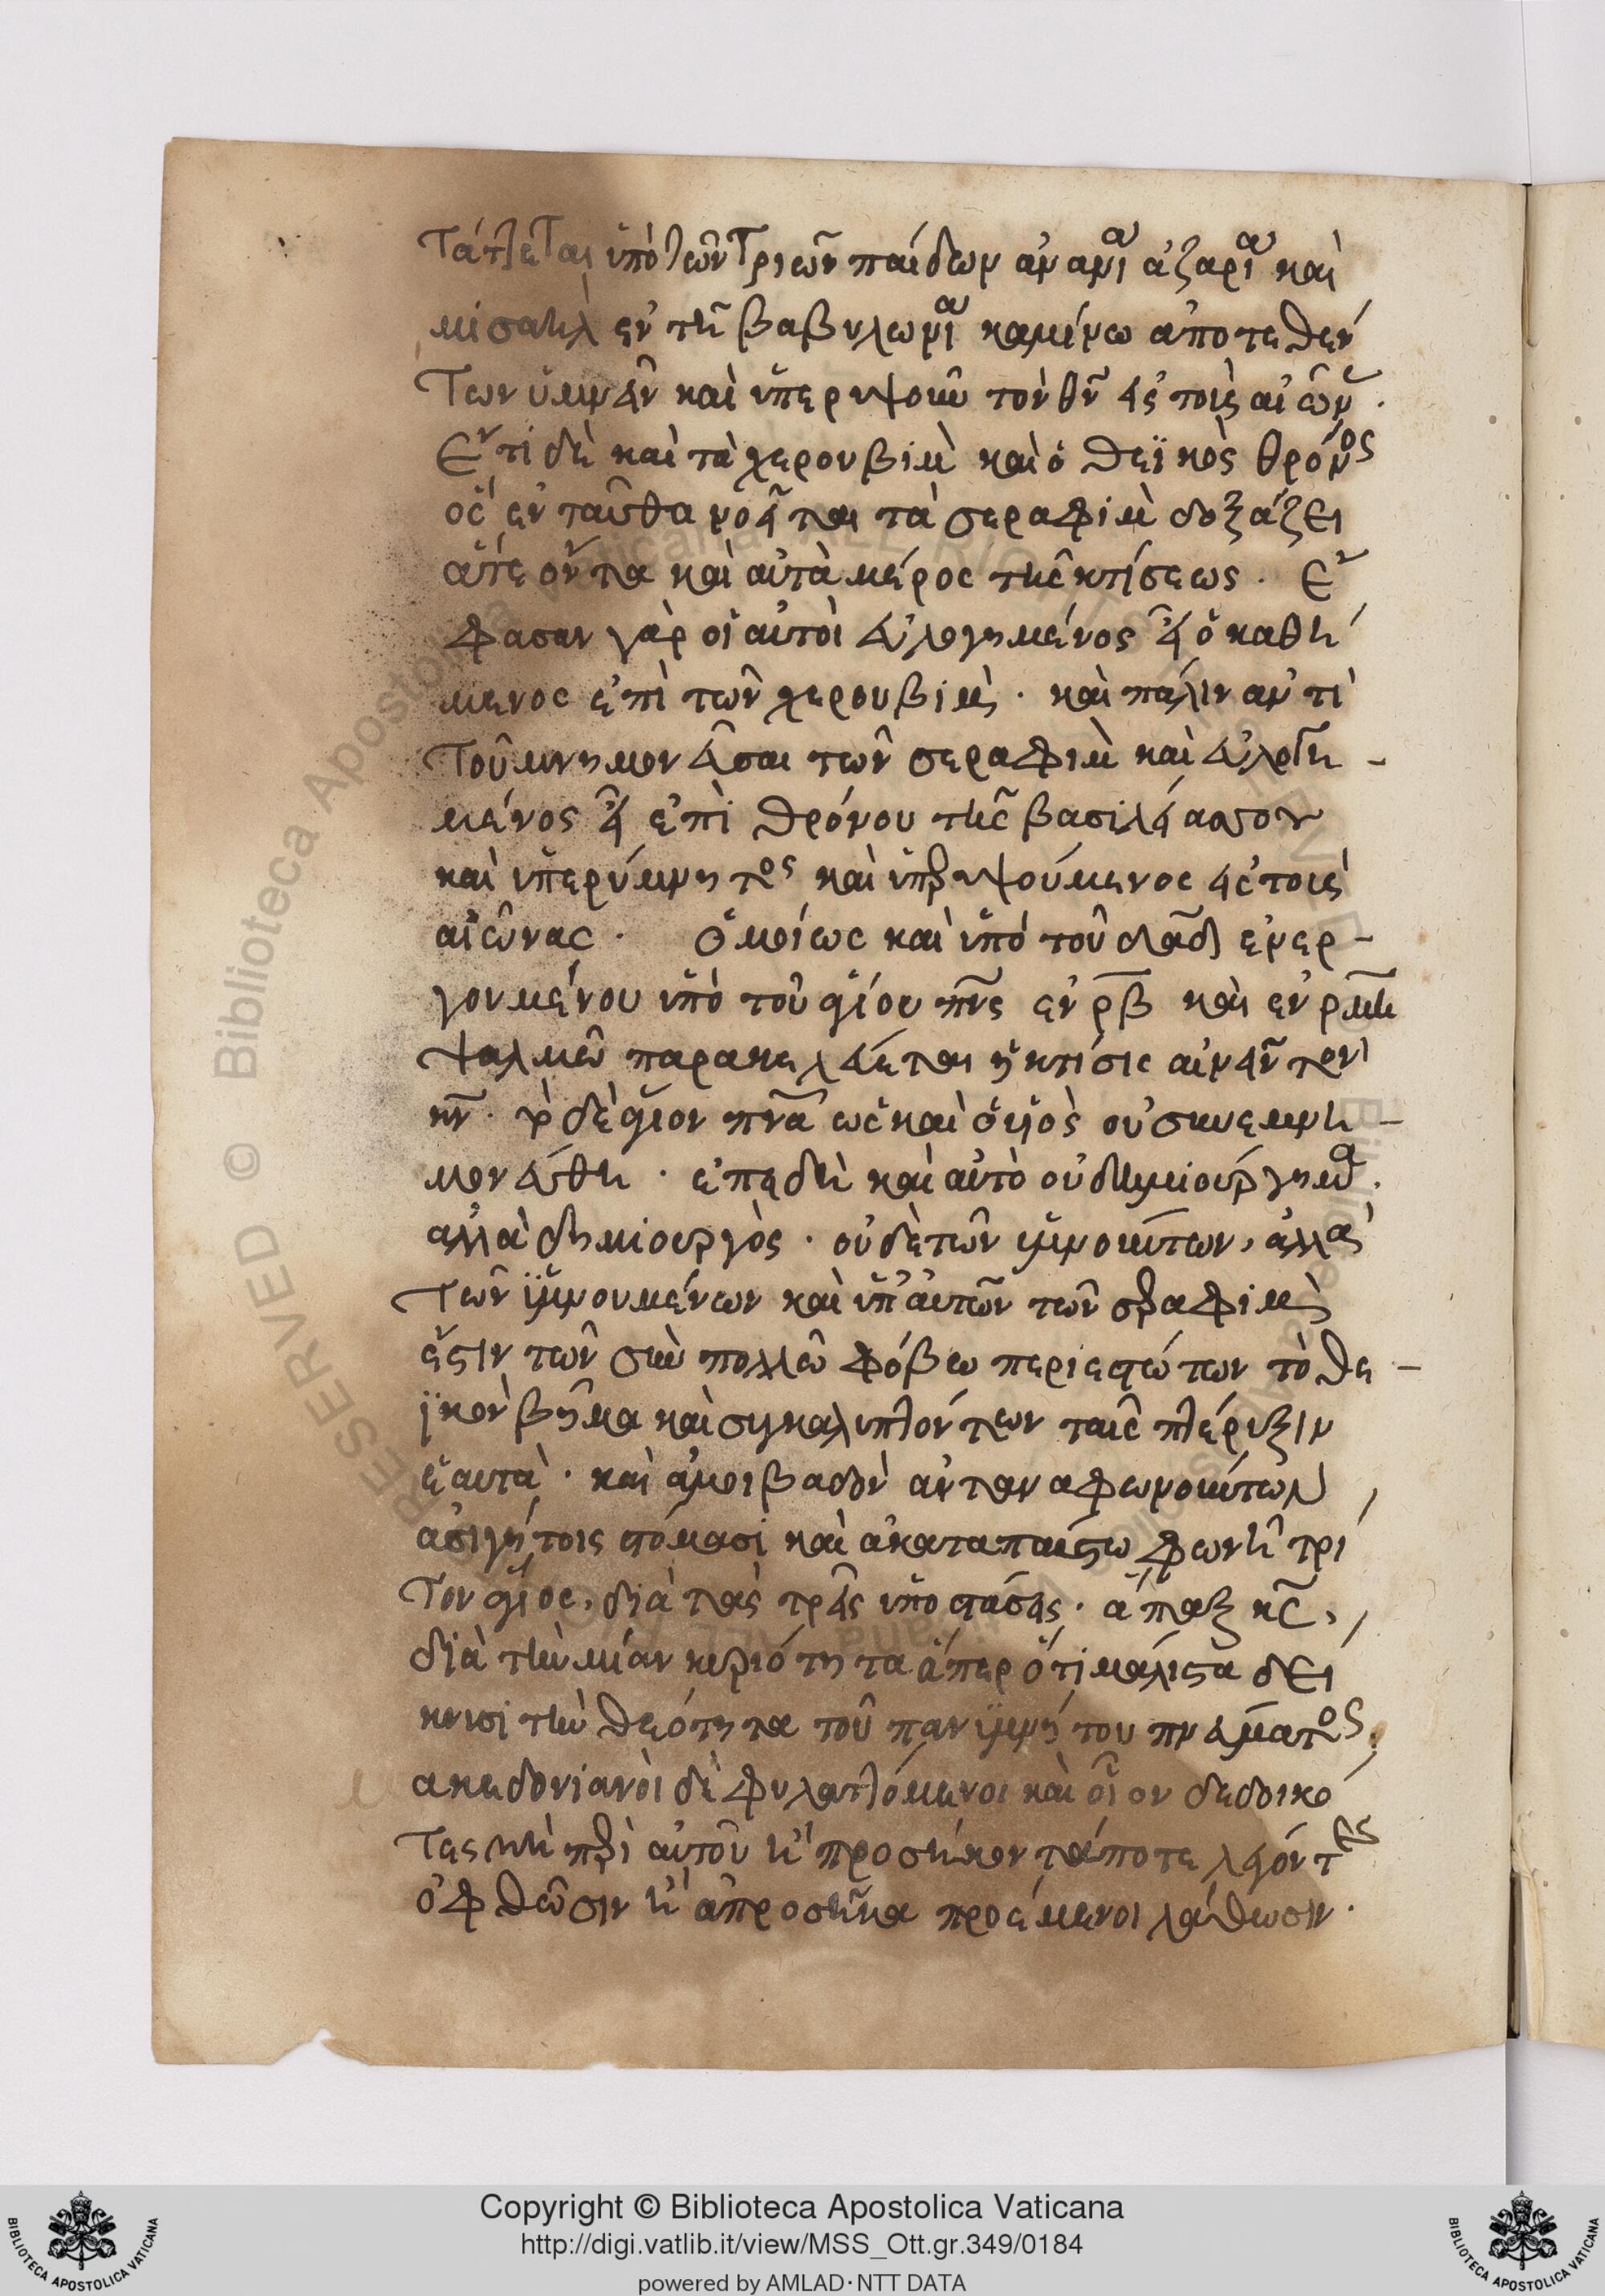 τάττεται ὑπὸ τῶν τριῶν παίδων ἀνανία ἀζαρία καὶ
μισαὴλ ἐν τῆ βαβυλωνία καμίνω ἀποτεθέν
των ὑμνεῖν καὶ ὑπερυψοῦν τὸν θν εἰς τοὺς αἰῶν
ἔτι δὲ καὶ τὰ χερουβὶμ καὶ ὁ θεϊκὸς θρόνος
ὃς ἐνταῦθα νοεῖται τὰ σεραφὶμ δοξάζει
ἅτε ὄντα καὶ αὐτὰ μέρος τῆς κτίσεως. ἔ
φασαν γὰρ οἱ αὐτοὶ εὐλογημένος εἶ ὁ καθή
μενος ἐπὶ τῶν χερουβίμ. καὶ πάλιν ἀντὶ
τοῦ μνημονεῦσαι τῶν σεραφὶμ καὶ εὐλογη -
μένος εἶ ἐπὶ θρόνου τῆς βασιλείας σου
καὶ ὑπερύμνητος καὶ ὑπερυψούμενος εἰς τοὺς
αἰῶνας. ὁμοίως καὶ ὑπὸ τοῦ δαδ ἐνερ -
γουμένου ὑπὸ τοῦ ἁγίου πνς ἐν ρβ καὶ ἐν ρμη
ψαλμῶ παρακελεύεται ἡ κτίσις αἰνεῖν τὸν
κν. τὸ δὲ ἅγιον πνα ὡς καὶ ὁ υἱὸς οὐ συνεμνη -
μονεύθη. ἐπειδὴ καὶ αὐτὸ οὐ δημιούργημα.
ἀλλὰ δημιουργός. οὐδὲ τῶν ὑμνούντων, ἀλλὰ
τῶν ὑμνουμένων καὶ ὑπ' αὐτῶν τῶν σεραφὶμ
ἐστὶν τῶν σὺν πολλῶ φόβω περιεστώτων τὸ θε -
ϊκὸν βῆμα καὶ συγκαλυπτόντων ταῖς πτέρυξιν
ἑαυτά. καὶ ἀμοιβαδὸν ἀνταναφωνούντων
ἀσιγήτοις στόμασι καὶ ἀκαταπαύστω φωνῆ τρί
τον ἅγιος, διὰ τὰς τρεῖς ὑποστάσεις. ἅπαξ κς,
διὰ τὴν μίαν κυριότητα ἅπερ ὅτι μάλιστα δει
κνυσι τὴν θεότητα τοῦ πανυμνήτου πνεύματος.
μακεδονιανοὶ δὲ φυλαττόμενοι καὶ οἷον δεδοικό
τες μὴ περὶ αὐτοῦ ἢ προσῆκόν τά ποτε λέγοντες
ὀφθῶσιν ἢ ἀπροσῆκα προέμενοι λάθωσιν.
Copyright © Biblioteca Apostolica Vaticana
http://digi.vatlib.it/view/MSS_Ott.gr.349/0184
powered by AMLAD·NTT DATA